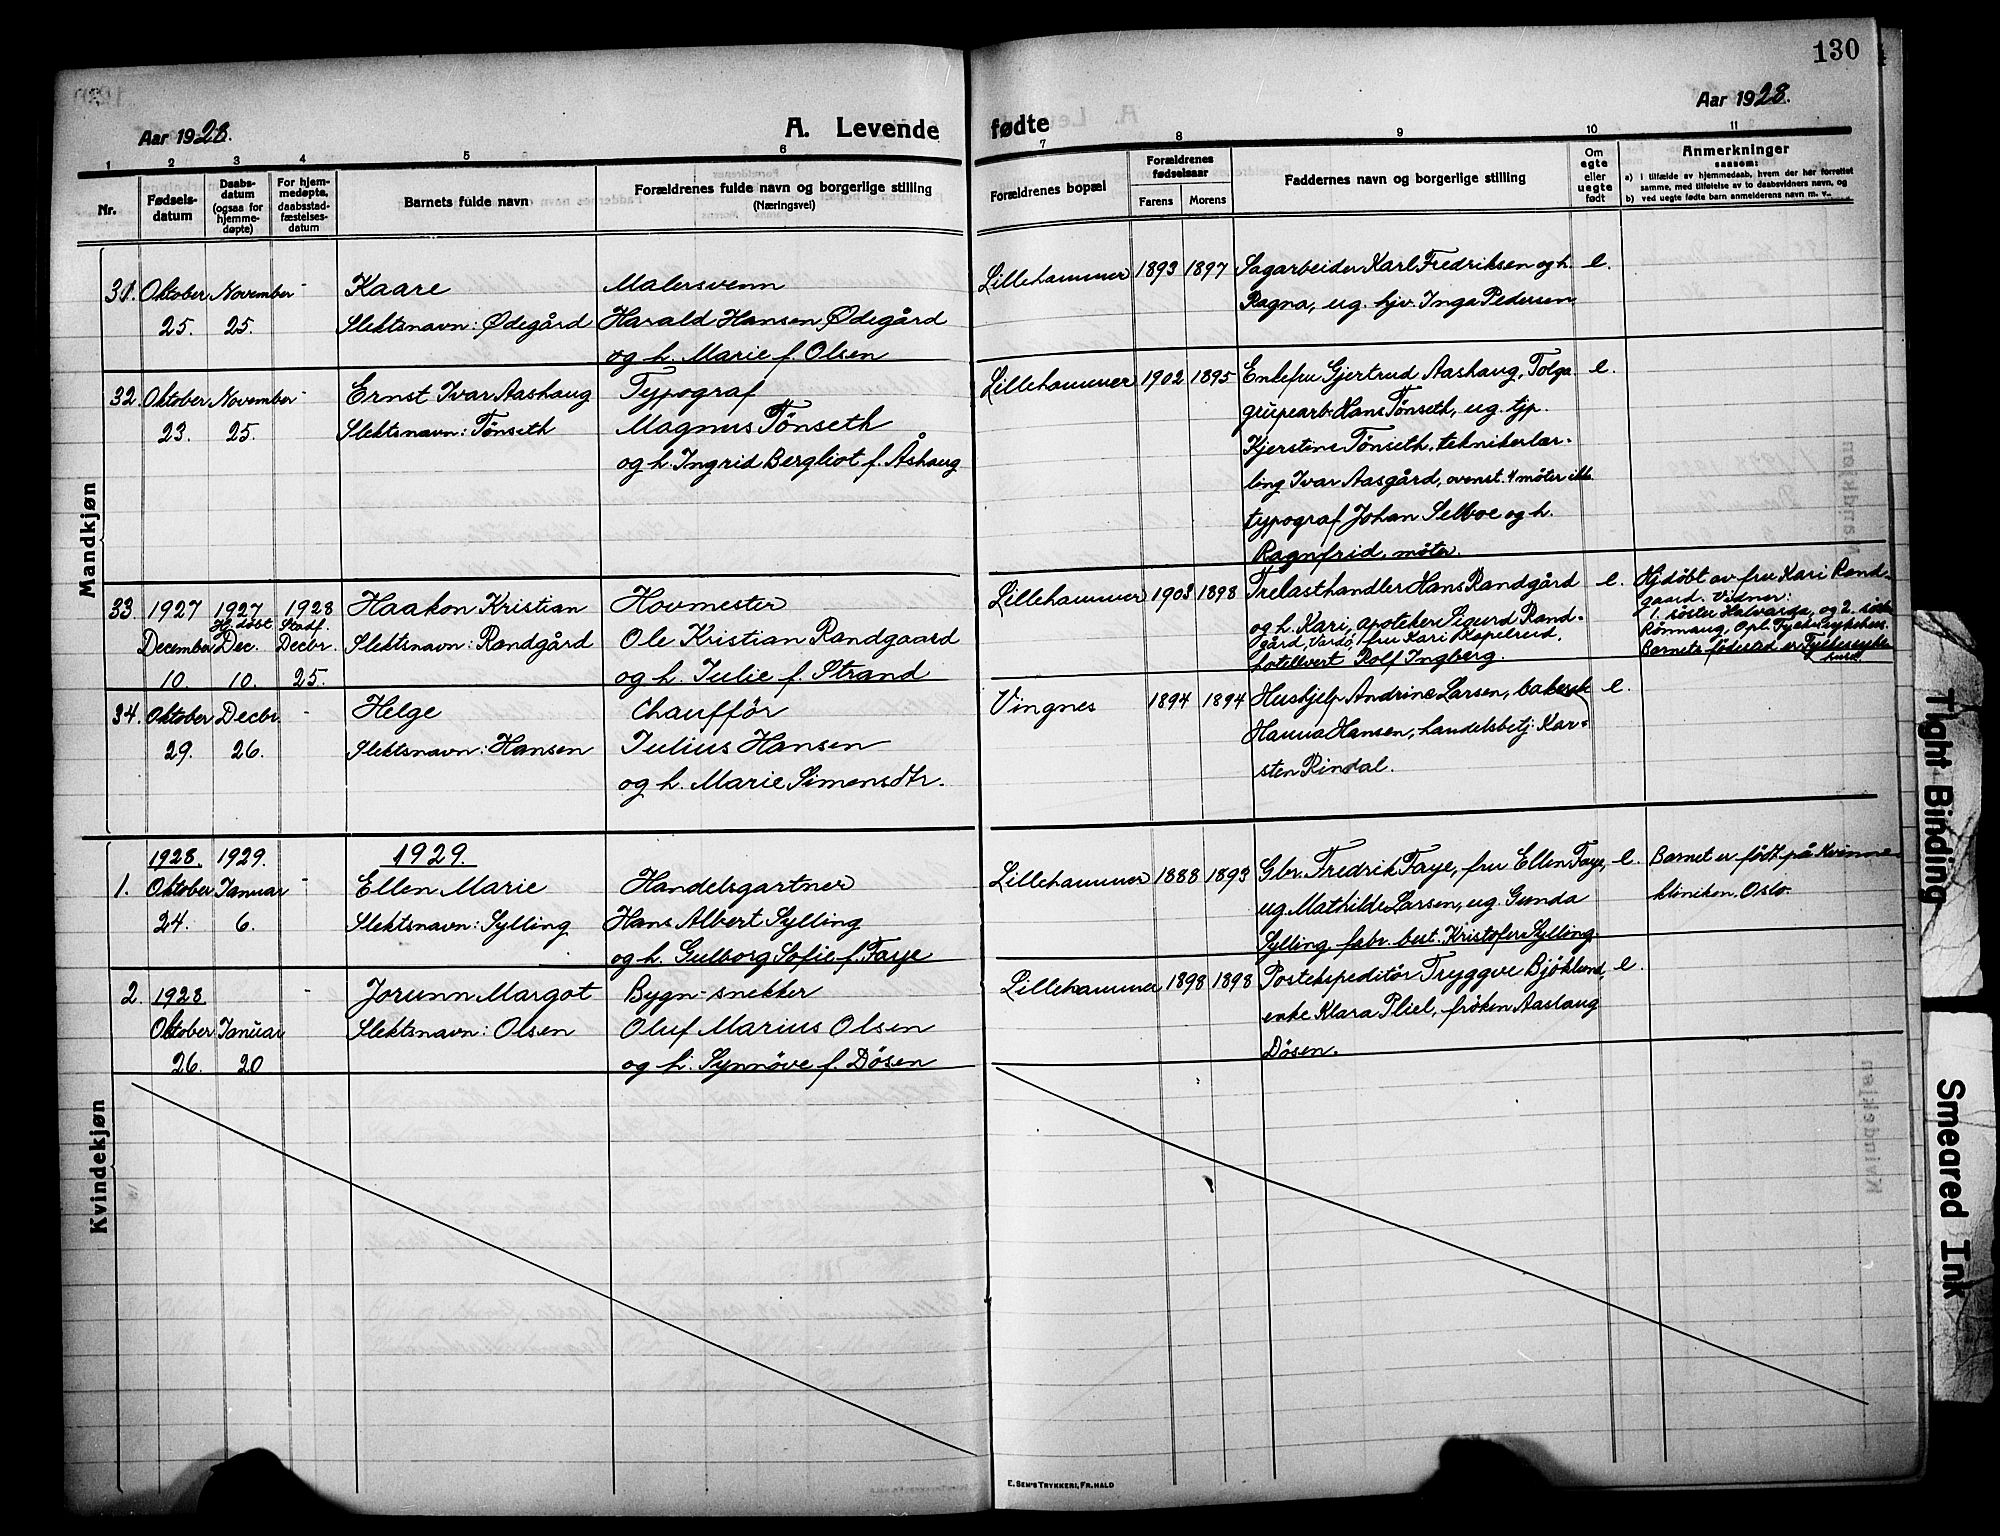 130
Aar 1928.
A. Levende
fødte
Aar 1928.
1 2 3 4 5 6
7 8 9 10 11
Nr.
Fødsels-
datum
Daabs-
datum
(ogsaa for
hjemme-
døpte)
For hjem-
medøpte,
daabsstad-
fæstelses-
datum
Barnets fulde navn
Forældrenes fulde navn og borgerlige stilling
(Næringsvei)
Forældrenes bopæl
Forældrenes
fødselsaar
Farens Morens
Faddernes navn og borgerlige stilling
Om
egte
eller
uegte
født
Anmerkninger
saasom:
a) i tilfælde av hjemmedaab, hvem der har forrettet
samme, med tilføielse av to daabsvidners navn, og
b) ved uegte fødte barn anmelderens navn m. v..
Mandkjøn
31. Oktober November - Kaare Malersvenn
25. 25. Slektsnavn: Ødegård Harald Hansen Ødegård
og h. Marie f. Olsen
Lillehammer 1893 1897 Sagarbeider Karl Fredriksen og h. e.
Ragna, ug. hjv. Inga Pedersen
32. Oktober November - Ernst Ivar Aashaug Typograf
23. 25. Slektsnavn: Tönseth Magnus Tönseth
og h. Ingrid Bergliot f. Åshaug
Lillehammer 1902 1895 Enkefru Gjertrud Aashaug, Tolga e.
grupearb. Hans Tönseth, ug. tjp.
Kjerstine Tönseth, teknikerlær-
ling Ivar Aasgård, ovenst. 4 möter ikke
typograf Johan Selboe og h.
Ragnfrid, möter.
33. 1927 1927 1928 Haakon Kristian Hovmester
Hj.døbt Stadf.
December Dec. Decbr. Slektsnavn: Randgård Ole Kristian Randgaard
10. 10. 25. og h. Julie f. Strand
Lillehammer 1903 1898 Trelasthandler Hans Randgård e.
og h. Kari, apoteker Sigurd Rand-
gård, Vardö, fru Kari Kopilrud,
hotellvert Rolf Ingberg.
Hjdøbt av fru Kari Rand-
gaard. Vidner:
1. søster Halvarda, og 2. søster
Rönnaug, Opl. Fylkessykehus.
Barnets fødested er Fylkessyke-
huset
34. Oktober Decbr. - Helge Chaufför
29. 26. Slektsnavn: Hansen Julius Hansen
og h. Marie Simensdtr.
Vingnes 1894 1894 Hushjelp Andrine Larsen, e.
Hanna Hansen, handelsbetj. Kar-
sten Rindal.
Kvindekjøn
1928. 1929. 1929.
1. Oktober Januar - Ellen Marie Handelsgartner
24. 6. Slektsnavn: Sylling Hans Albert Sylling
og h. Gulborg Sofie f. Faye
Lillehammer 1888 1893 Gbr. Fredrik Faye, fru Ellen Faye, e.
ug. Mathilde Larsen, ug. Gunda
Sylling, fabr. best. Kristofer Sylling.
Barnet er född på Kvinne-
kliniken Oslo.
2. 1928 - Jorunn Margot Bygn-snekker
Oktober Januar Slektsnavn: Olsen Oluf Marius Olsen
26. 20 og h. Synnöve f. Dösen
Lillehammer 1898 1898 Postekspeditör Tryggve Bjöklund, e.
enke Klara Pliel, fröken Aaslaug
Dösen.
E. SEM'S TRYKKERI, FR.HALD
Tight Binding
Smeared Ink